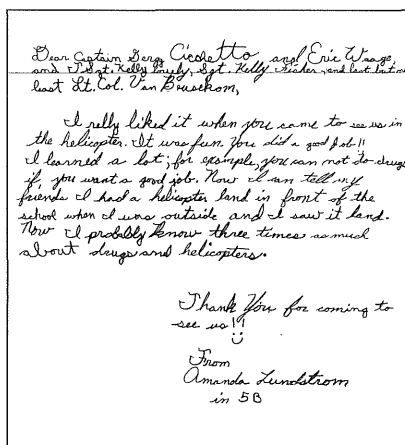 Dear Captain Gerry Cicchetto and Eric Waage,
and T Sgt. Kelly, Sgt. Kelly Fisher, and last but not
least Lt. Col. Van Beusekom,
I relly liked it when you came to see us in
the helicopter. It was fun. You did a good job!!
I learned a lot; for example, you can not do drugs
if you want a good job. Now I can tell my
friends I had a helicopter land in front of the
school when I was outside and I saw it land.
Now I probably know three times as much
about drugs and helicopters.
Thank You for coming to
see us!!
From
Amanda Lundstrom
in 5B